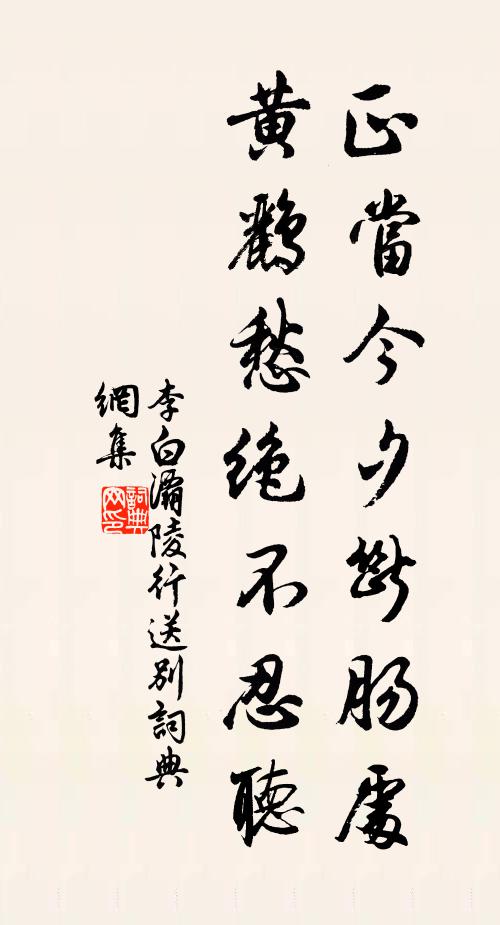 正當今夕斷腸處
黃鸝愁絕不忍聽
李白灞陵行送別詞典
網集
詞典
网印